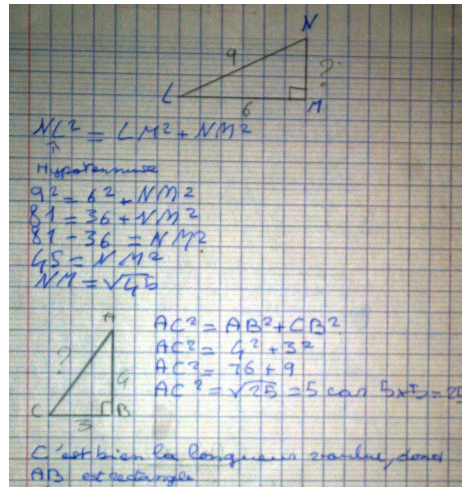 N
9
?
L
6
M
NL² = LM² + NM²
Hypotenuse
9² = 6² + NM²
81 = 36 + NM²
81 - 36 = NM²
45 = NM²
NM = √45
A
?
4
C
3
B
AC² = AB² + CB²
AC² = 4² + 3²
AC² = 16 + 9
AC² = √25 = 5 car 5x5 = 25
C'est bien la longueur voulue, donc
AB est rectangle